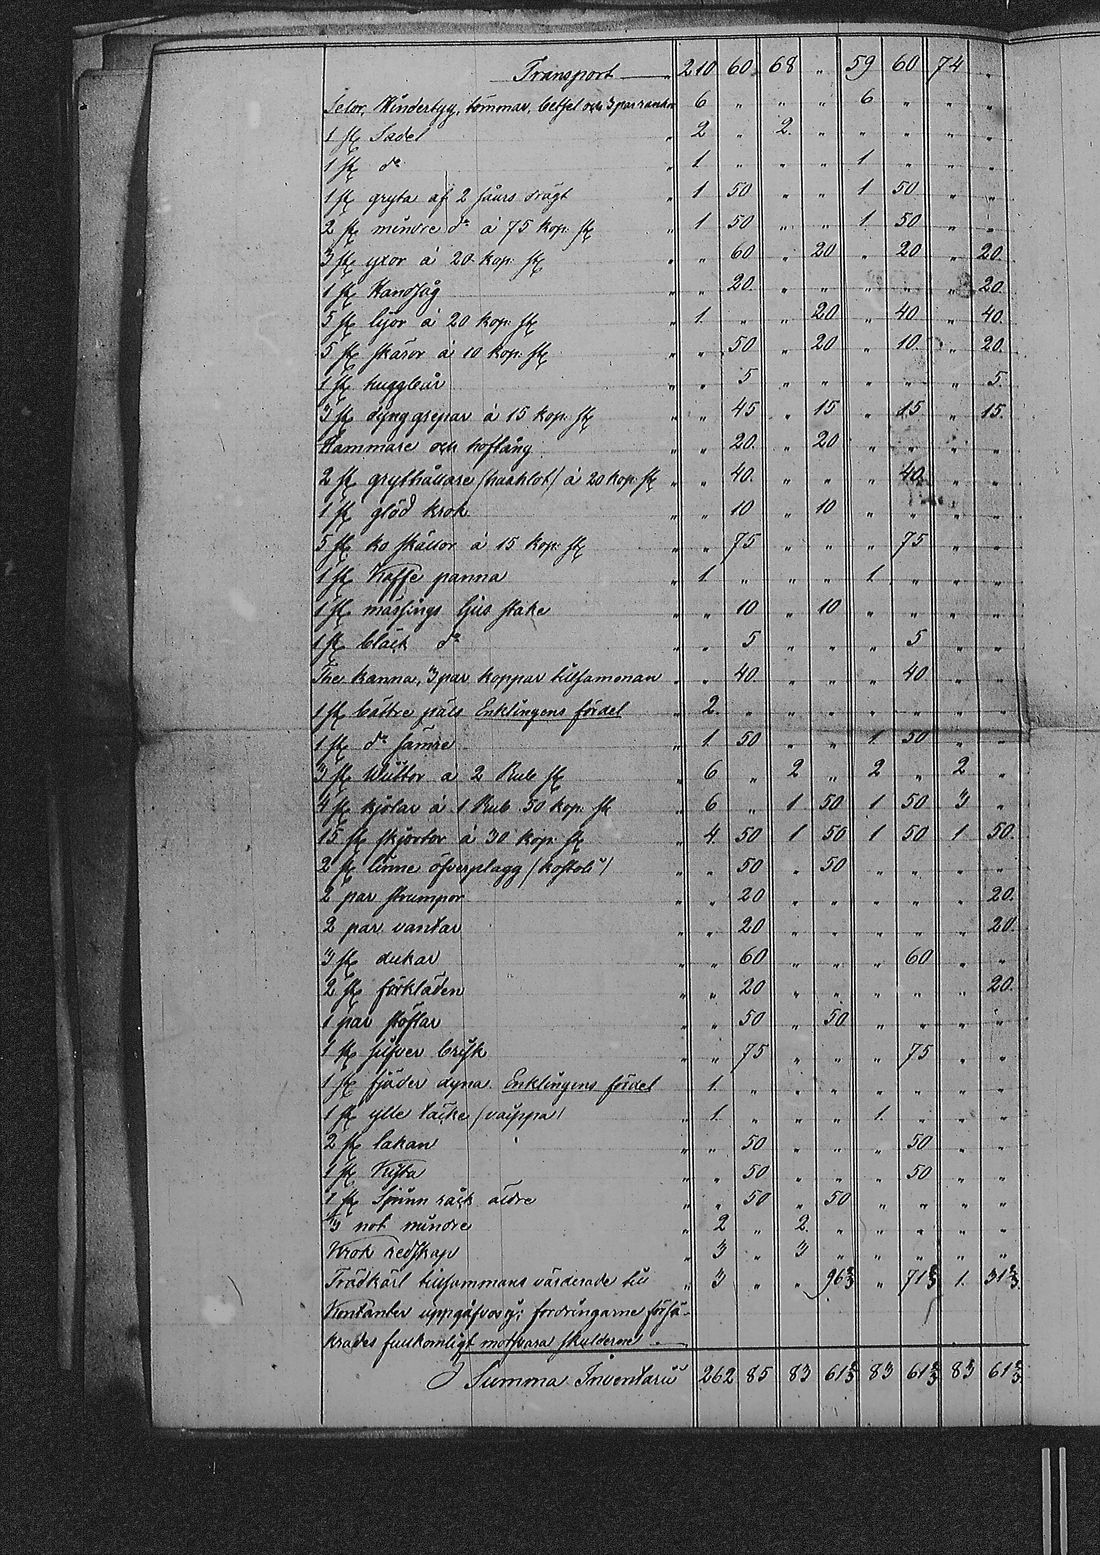 Transport — „ 210 60 68 „ 59 60 74 „
Selor, Windertyg, tömmar, betsel och 3 par rankor 6 „ „ „ 6 „ „ „
1 st Sadel „ 2 „ 2 „ „ „ „ „
1 st do „ 1 „ „ „ 1 „ „ „
1 st gryta af 2 såars drägt „ 1 50 „ „ 1 50 „ „
2 st mindre do á 75 kop. st „ 1 50 „ „ 1 50 „ „
3 st yxor á 20 kop. st „ „ 60 „ 20 „ 20 „ 20
1 st Handsåg „ „ 20 „ „ „ „ „ 20
5 st lijor á 20 kop. st „ 1 „ „ 20 „ 40 „ 40
5 st skäror á 10 kop. st „ „ 50 „ 20 „ 10 „ 20
1 st huggbår „ „ 5 „ „ „ „ „ 5
3 st dynggrepar á 15 kop. st „ „ 45 „ 15 „ 15 „ 15
Hammare och hoftång „ „ 20 „ 20 „ „ „ „
2 st grythållare /haahlot/ á 20 kop. st „ „ 40 „ „ „ 40 „ „
1 st glöd krok „ „ 10 „ 10 „ „ „ „
5 st ko skällor á 15 kop. st „ „ 75 „ „ „ 75 „ „
1 st Kaffe panna „ 1 „ „ „ 1 „ „ „
1 st mässings ljus stake „ „ 10 „ 10 „ „ „ „
1 st bläck do „ „ 5 „ „ „ 5 „ „
The kanna, 3 par koppar tillsamman „ „ 40 „ „ „ 40 „ „
1 st bättre päls Enklingens fördel „ 2 „ „ „ „ „ „ „
1 st do sämre „ 1 50 „ „ 1 50 „ „
3 st Wültor á 2 Rub st „ 6 „ 2 „ 2 „ 2 „
4 st kjolar á 1 Rub 50 kop. st „ 6 „ 1 50 1 50 3 „
15 st skjortor á 30 kop. st „ 4 50 1 50 1 50 1 50
2 st linne öfverplagg /kostoli/ „ „ 50 „ 50 „ „ „ „
2 par strumpor „ „ 20 „ „ „ „ „ 20
2 par vantar „ „ 20 „ „ „ „ „ 20
3 st dukar „ „ 60 „ „ „ 60 „ „
2 st förkläden „ „ 20 „ „ „ „ „ 20
1 par stöflar „ „ 50 „ 50 „ „ „ „
1 st silfver brisk „ „ 75 „ „ „ 75 „ „
1 st fjäder dyna Enklingens fördel 1 „ „ „ „ „ „ „
1 st ylle täcke /vaippa/ „ 1 „ „ „ 1 „ „ „
2 st lakan „ „ 50 „ „ „ 50 „ „
1 st Kista „ „ 50 „ „ „ 50 „ „
1 st Spinn råck äldre „ „ 50 „ 50 „ „ „ „
3 not mindre „ 2 „ 2 „ „ „ „ „
Krok redskap „ 3 „ 3 „ „ „ „ „
Trädkärl tillsammans värderade till „ 3 „ „ 96⅔ „ 71⅔ 1 31⅔
Kontanter uppgåfvos ej; fordringarne försä-
krades fullkomligt motsvara skulderne —
Summa Inventarii 262 85 83 61⅔ 83 61⅔ 83 61⅔